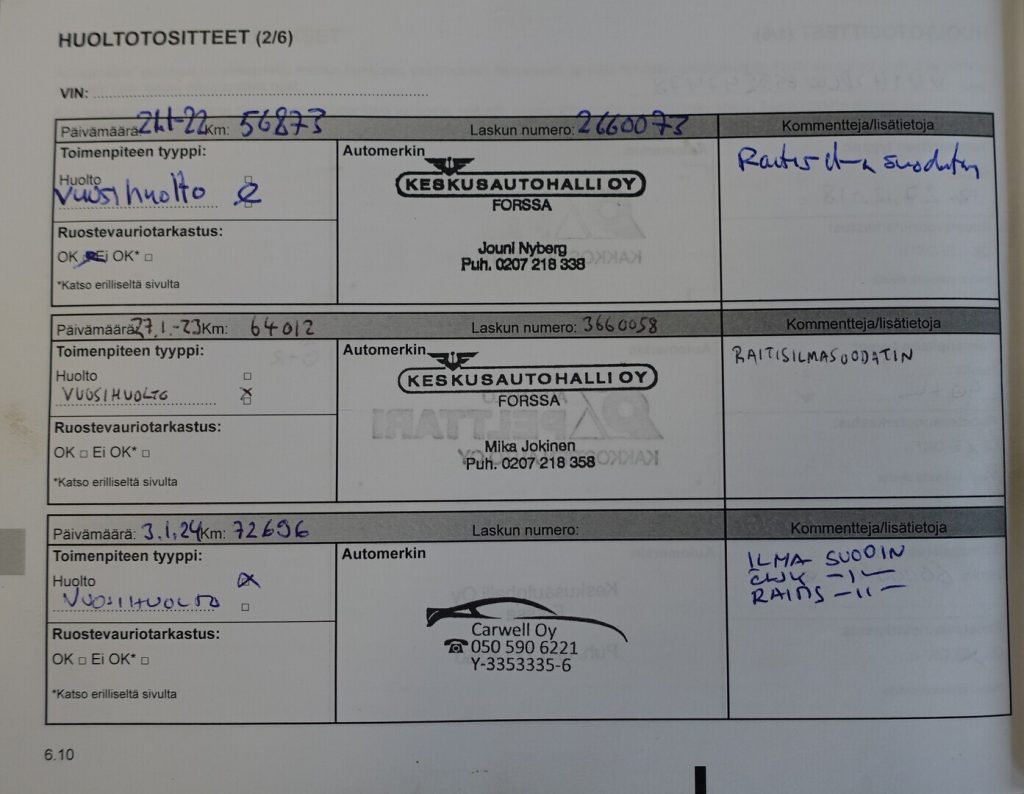 HUOLTOTOSITTEET (2/6)
VIN:
Päivämäärä: Km: 56873 Laskun numero: 2660073 Kommentteja/lisätietoja
Toimenpiteen tyyppi:
Huolto
Vuosihuolto
Ruostevauriotarkastus:
OK Ei OK*
*Katso erilliseltä sivulta
Automerkin
KESKUSAUTOHALLI OY
FORSSA
Jouni Nyberg
Puh. 0207 218 338
Päivämäärä: 27.1.-23 Km: 64012 Laskun numero: 3660058 Kommentteja/lisätietoja
Toimenpiteen tyyppi:
Huolto
VUOSIHUOLTO
Ruostevauriotarkastus:
OK Ei OK*
*Katso erilliseltä sivulta
Automerkin
KESKUSAUTOHALLI OY
FORSSA
Mika Jokinen
Puh. 0207 218 358
RAITISILMASUODATIN
Päivämäärä: 3.1.24 Km: 72696 Laskun numero: Kommentteja/lisätietoja
Toimenpiteen tyyppi:
Huolto
VUOSIHUOLTO
Ruostevauriotarkastus:
OK Ei OK*
*Katso erilliseltä sivulta
Automerkin
Carwell Oy
050 590 6221
Y-3353335-6
ILMA SUODIN
RAITIS -11-
6.10